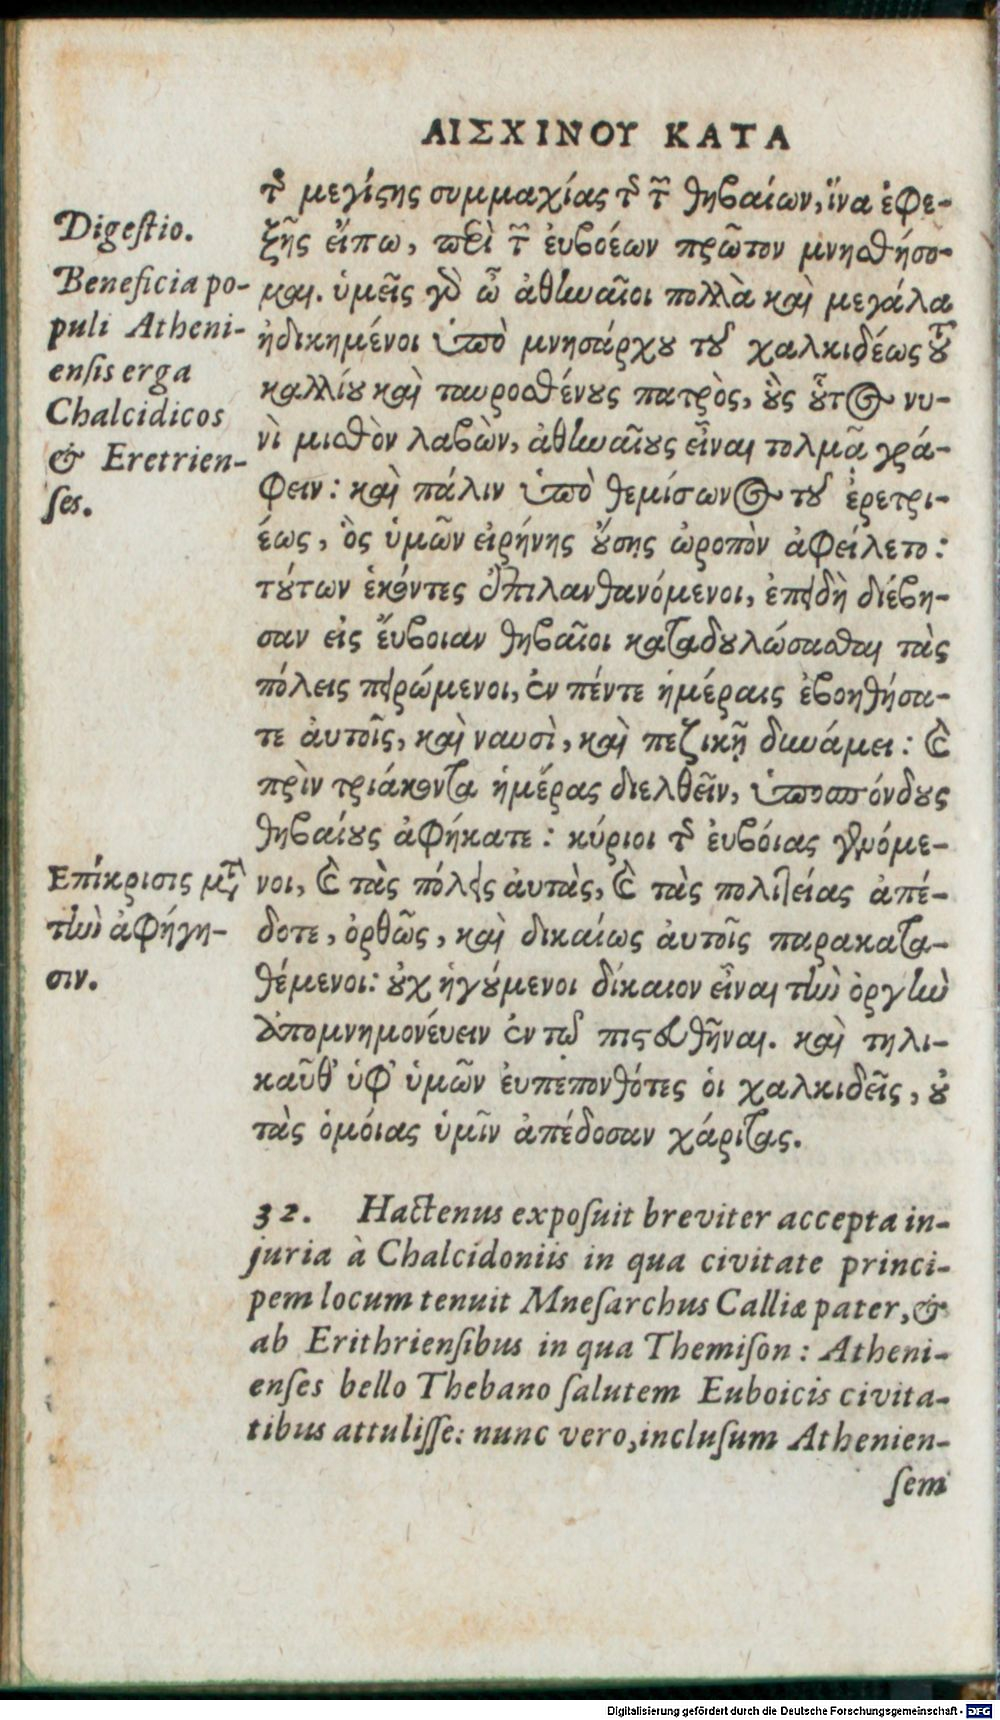 ΑΙΣΧΙΝΟΥ ΚΑΤΑ
τ῀ μεγίςης συμμαχίας τ῀ τ῀ θηβαίων, ἵνα ἐφε-
ξῆς εἴπω, περὶ τ῀ ἐυβοέων πρῶτον μνησθήσο-
μαι. ὑμεῖς γὸ ὦ ἀθηναῖοι πολλὰ καὶ μεγάλα
ἠδικημένοι ὑπὸ μνησάρχου τοῦ χαλκιδέως τοῦ
καλλίου καὶ ταυροσθένους πατρὸς, οὓς οὗτος νυ-
νὶ μισθὸν λαβὼν, ἀθηναίους εἶναι τολμᾷ γρά-
φειν: καὶ πάλιν ὑπὸ θεμίσωνος τοῦ ἐρετρι-
έως, ὃς ὑμῶν εἰρήνης οὔσης ὠροπὸν ἀφείλετο:
τούτων ἑκόντες ἐπιλανθανόμενοι, ἐπειδὴ διέβη-
σαν εἰς ἔυβοιαν θηβαῖοι καταδουλώσασθαι τὰς
πόλεις πειρώμενοι, ἐν πέντε ἡμέραις ἐβοηθήσα-
τε ἀυτοῖς, καὶ ναυσὶ, καὶ πεζικῇ δυνάμει: καὶ
πρὶν τριάκοντα ἡμέρας διελθεῖν, ὑποσπόνδους
θηβαίους ἀφήκατε: κύριοι τ῀ ἐυβόιας γενόμε-
νοι, καὶ τὰς πόλεις ἀυτὰς, καὶ τὰς πολιτείας ἀπέ-
δοτε, ὀρθῶς, καὶ δικαίως ἀυτοῖς παρακατα-
θέμενοι: οὐχ ἡγούμενοι δίκαιον εἶναι τὴν ὀργὴν
ἀπομνημονέυειν ἐν τῷ πιςευθῆναι. καὶ τηλι-
καῦθ' ὑφ' ὑμῶν ἐυπεπονθότες ὁι χαλκιδεῖς, οὐ
τὰς ὁμόιας ὑμῖν ἀπέδοσαν χάριτας.
Digeſtio.
Beneficia po-
puli Atheni-
enſis erga
Chalcidicos
& Eretrien-
ſes.
Επίκρισις μτ῀
τὴν ἀφήγη-
σιν.
32. Hactenus expoſuit breviter accepta in-
juria à Chalcidoniis in qua civitate princi-
pem locum tenuit Mneſarchus Calliæ pater, &
ab Erithrienſibus in qua Themiſon: Atheni-
enſes bello Thebano ſalutem Euboicis civita-
tibus attuliſſe: nunc vero, incluſum Athenien-
ſem
Digitalisierung gefördert durch die Deutsche Forschungsgemeinschaft - DFG